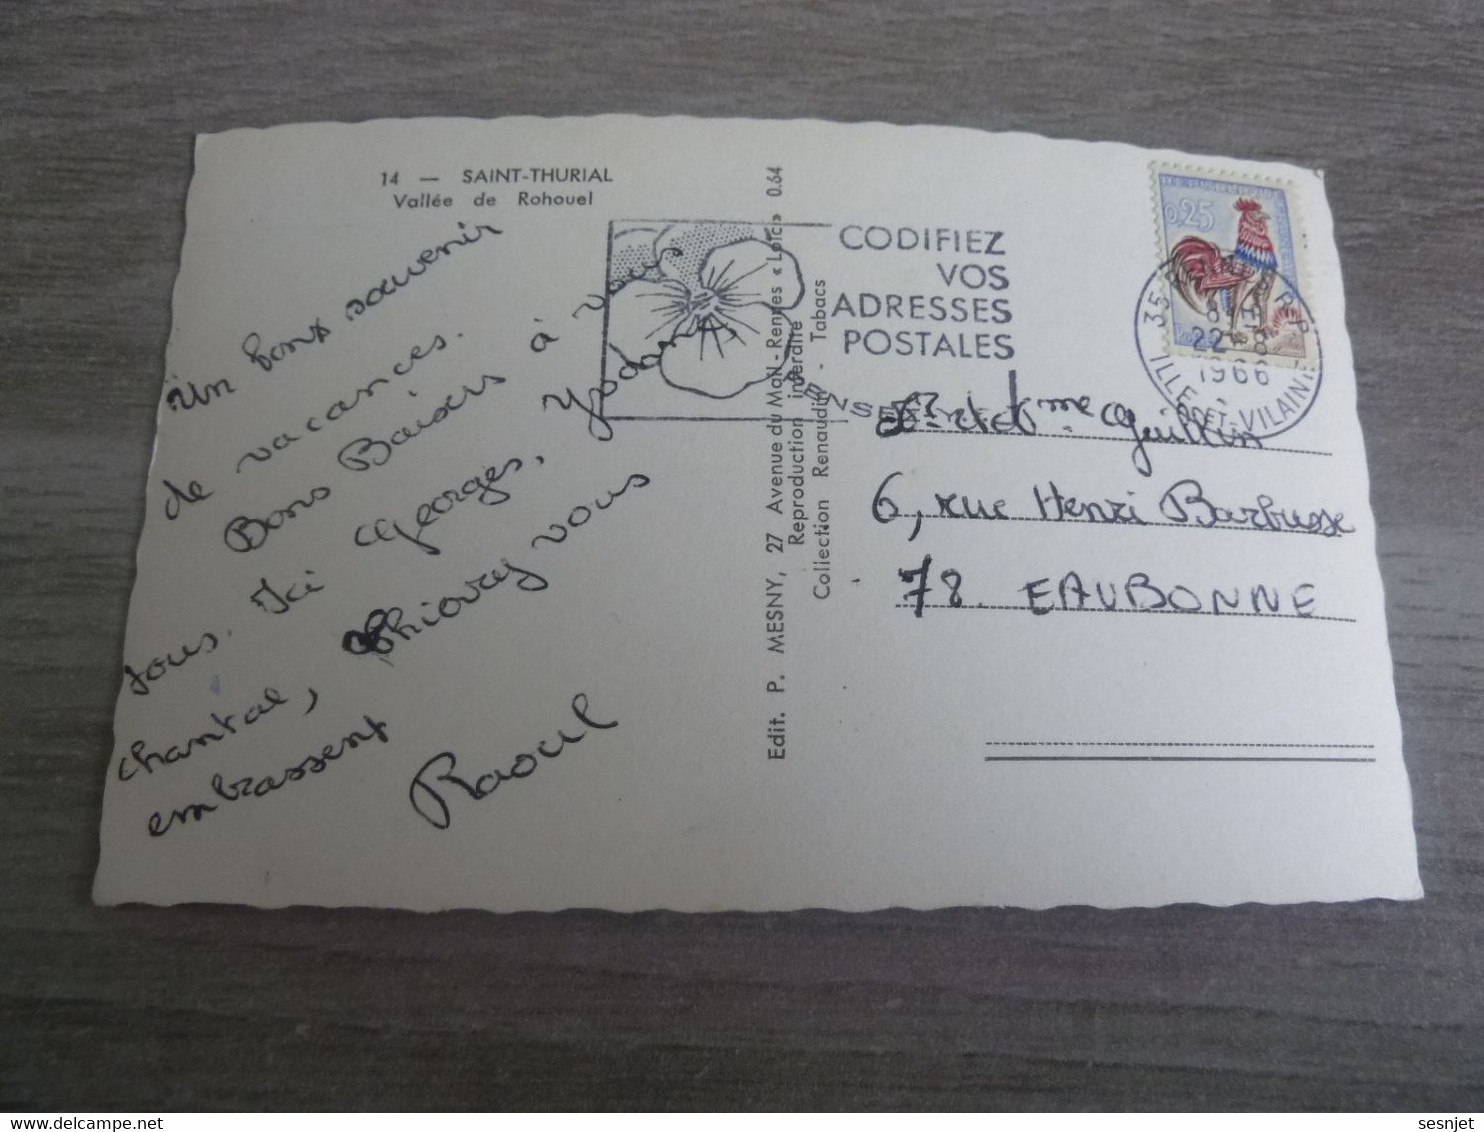 14 — SAINT-THURIAL
Vallée de Rohouel
Un bons souvenir
de vacances.
Bons Baisers à vous
tous. Ici Georges,
chantal, Thierry vous
embrassent
Raoul
Edit. P. MESNY, 27 Avenue du Mail - Rennes « Loïc » 0.64
Reproduction interdite
Collection Renaudin - Tabacs
CODIFIEZ
VOS
ADRESSES
POSTALES
PENSEZ
0,25
35
22-8
1966
ILLE-ET-VILAINE
et Mme Guillin
6, rue Henri Barbusse
78. EAUBONNE
sesnjet